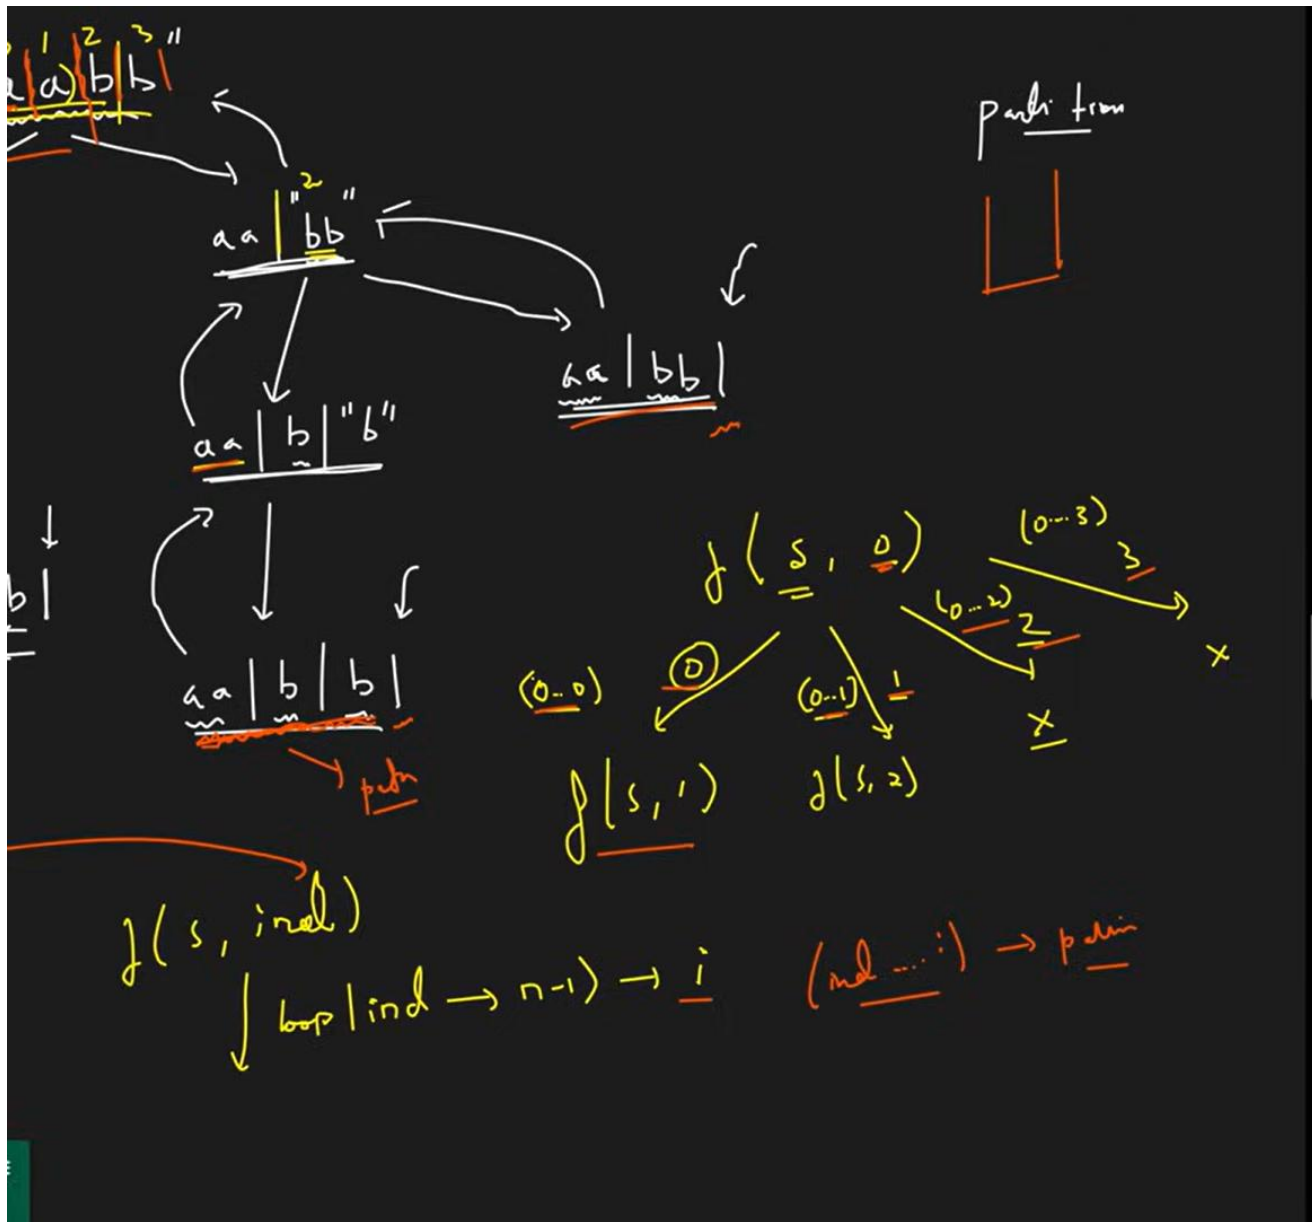 1 2 3
a|a)b|b|"
partition
2
aa|"bb"
aa|bb|
aa|b|"b"
(0...3)
3
f(s, 0)
b|
(0...2)
2
x
aa|b|b|
(0..0)
0
(0..1)
1
x
f(s, 1)
f(s, 2)
f(s, ind)
loop(ind → n-1) → i
(ind ....i) → palin